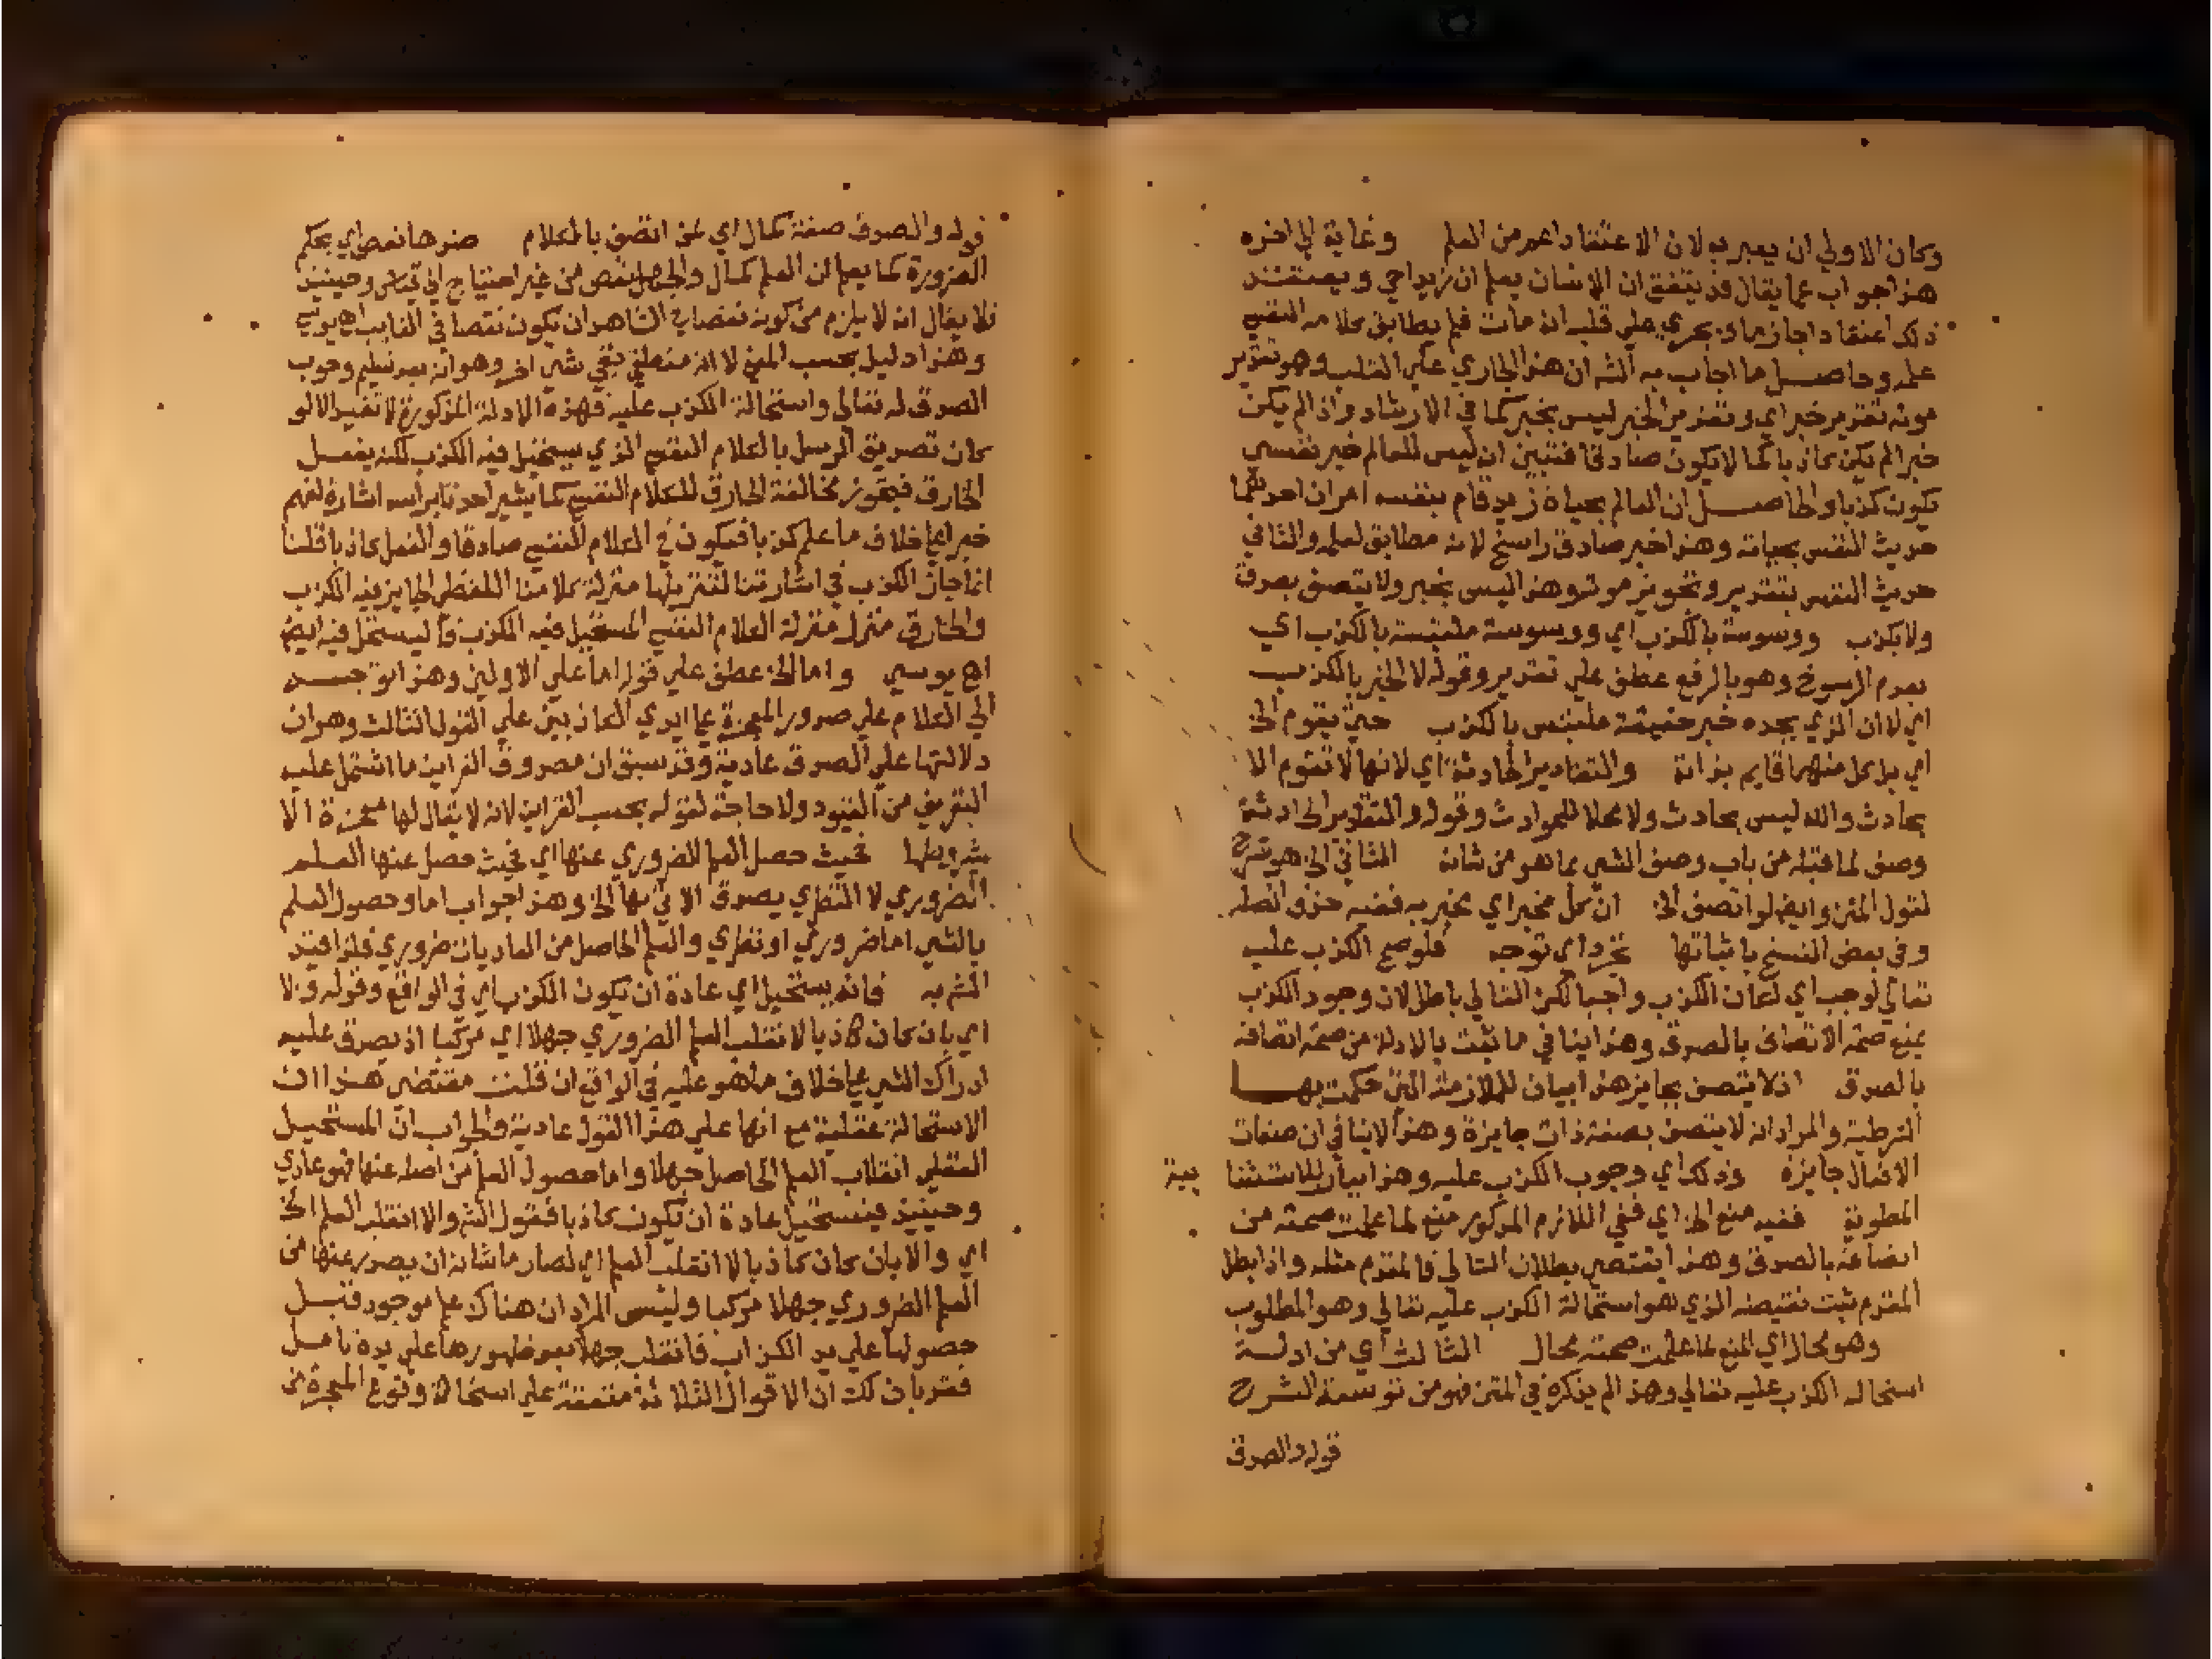 وكان الاولي ان يعبر به لان الاعتقاد اعم من العلم وغاية الي اخره
هذا جواب عما يقال قد يتفق ان الانسان يعلم ان زيدا حي ويعتقد
ذلك اعتقادا جازما ويجري علي قلبه انه مات فلم يطابق كلامه النفسي
علمه وحاصل ما اجاب به الش ان هذا الجاري علي القلب وهو تقدير
موته تقدير خبر اي وتقدير الخبر ليس بخبر كما في الارشاد واذا لم يكن
خبرا لم يكن كاذبا كما لا يكون صادقا فتبين ان ليس للعالم خبر نفسي
يكون كذبا والحاصل ان العالم بحياة زيد قام بنفسه امران احدهما
حديث النفس بحياته وهذا خبر صادق راسخ لانه مطابق لعلمه والثاني
حديث النفس بتقدير وتجويز موته وهذا ليس بخبر ولا يتصف بصدق
ولا بكذب ووسوسة بالكذب اي ووسوسة ملتبسة بالكذب اي
بعدم الرسوخ وهو بالرفع عطف علي تقدير وقوله لا الخبر بالكذب
اي لا ان الذي يجده خبر حقيقة ملتبس بالكذب حتي يقوم الخ
اي بل كل منهما قايم بذاته والتقادير الحادثة اي لانها لا تقوم الا
بحادث والله ليس بحادث ولا محلا للحوادث وقوله والتقادير الحادثة
وصف لما قبله من باب وصف الشي بما هو من شانه الثاني الخ هو شرح
لقول المتن وايضا لو اتصف الخ ان كل مخبر اي مخبر به ففيه حذف الصلة
وفي بعض النسخ باثباتها تحرد اي توجه فلو صح الكذب عليه
تعالي لوجب اي لكان الكذب واجبا لكن التالي باطل لان وجود الكذب
يمنع صحة الاتصاف بالصدق وهذا ينافي ما ثبت بالادلة من صحة اتصافه
بالصدق اذ لا يتصف بجايز هذا بيان للملازمة التي حكمت بها
الشرطية والمراد انه لا يتصف بصفة ذات جايزة وهذا لا ينافي ان صفات
الافعال جايزة وذلك اي وجوب الكذب عليه وهذا بيان للاستثنا ئية
المطوية ففيه منع الخ اي ففي اللازم المذكور منع لما علمت صحته من
اتصافه بالصدق وهذا يقتضي بطلان التالي فالمقدم مثله واذا بطل
المقدم ثبت نقيضه الذي هو استحالة الكذب عليه تعالي وهو المطلوب
وهو محال اي المنع لما علمت صحته محال الثالث اي من ادلة
استحالة الكذب عليه تعالي وهذا لم يذكره في المتن فهو من توسعة الشرح
قوله والصدق
قوله والصدق صفة كمال اي لمن اتصف بالكلام ضدها نقص اي بحكم
الضرورة كما يعلم ان العلم كمال والجهل نقص من غير احتياج الي قياس وحينئذ
فلا يقال انه لا يلزم من كونه نقصا في الشاهد ان يكون نقصا في الغايب اه يوسي
وهذا دليل بحسب المعني لا انه منطقي بقي شي اخر وهو انه بعد تسليم وجوب
الصدق له تعالي واستحالة الكذب عليه فهذه الادلة المذكورة لا تفيد الا لو
كان تصديق الرسل بالكلام النفسي الذي يستحيل فيه الكذب لكنه يفعل
الخارق فيجوز مخالفة الخارق للكلام النفسي كما يشير احدنا براسه اشارة تفهم
خبرا علي خلاف ما علم كذبا فيكون في الكلام النفسي صادقا والفعل كاذبا قلنا
انما جاز الكذب في اشارتنا لتنزيلها منزلة كلامنا اللفظي الجايز فيه الكذب
والخارق منزل منزلة الكلام النفسي المستحيل فيه الكذب فاليستحل فيه ايضا
اه يوسي واما الخ عطف علي قوله اما علي الاولين وهذا توجه
الي الكلام علي صدور المعجزة علي ايدي الكاذبين علي القول الثالث وهو ان
دلالتها علي الصدق عادية وقد سبق ان مصدوق القراين ما اشتمل عليه
التعريف من القيود ولا حاجة لقوله بحسب القراين لانه لا يقال لها معجزة الا
بشروطها بحيث حصل العلم الضروري عنها اي بحيث حصل عنها العلم
الضروري لا النظري يصدق الاتي بها الخ وهذا جواب اما وحصول العلم
بالشي اما ضروري او نظري والعلم الحاصل من العاديات ضروري فلذا قيد
الش به فانه يستحيل اي عادة ان يكون الكذب اي في الواقع وقوله والا
اي بان كان كاذبا لانقلب العلم الضروري جهلا اي مركبا اذ يصدق عليه
ادراك الشي علي خلاف ما هو عليه في الواقع ان قلت مقتضي هذا ان
الاستحالة عقلية مع انها علي هذا القول عادية والجواب ان المستحيل
العقلي انقلاب العلم الحاصل جهلا واما حصول العلم من اصله عنها فهو عادي
وحينئذ فيستحيل عادة ان يكون كاذبا فقول الش والا انقلب العلم الخ
اي والا بان كان كاذبا لا انقلب العلم اي لصار ما شانه ان يصدر عنها من
العلم الضروري جهلا مركبا وليس المراد ان هناك علم موجود قبل
حصولها علي يد الكذاب فانقلب جهلا بعد ظهورها علي يده تامل
فقد بان لك ان الاقوال الثلاثة متفقة علي استحالة وقوع المعجزة من